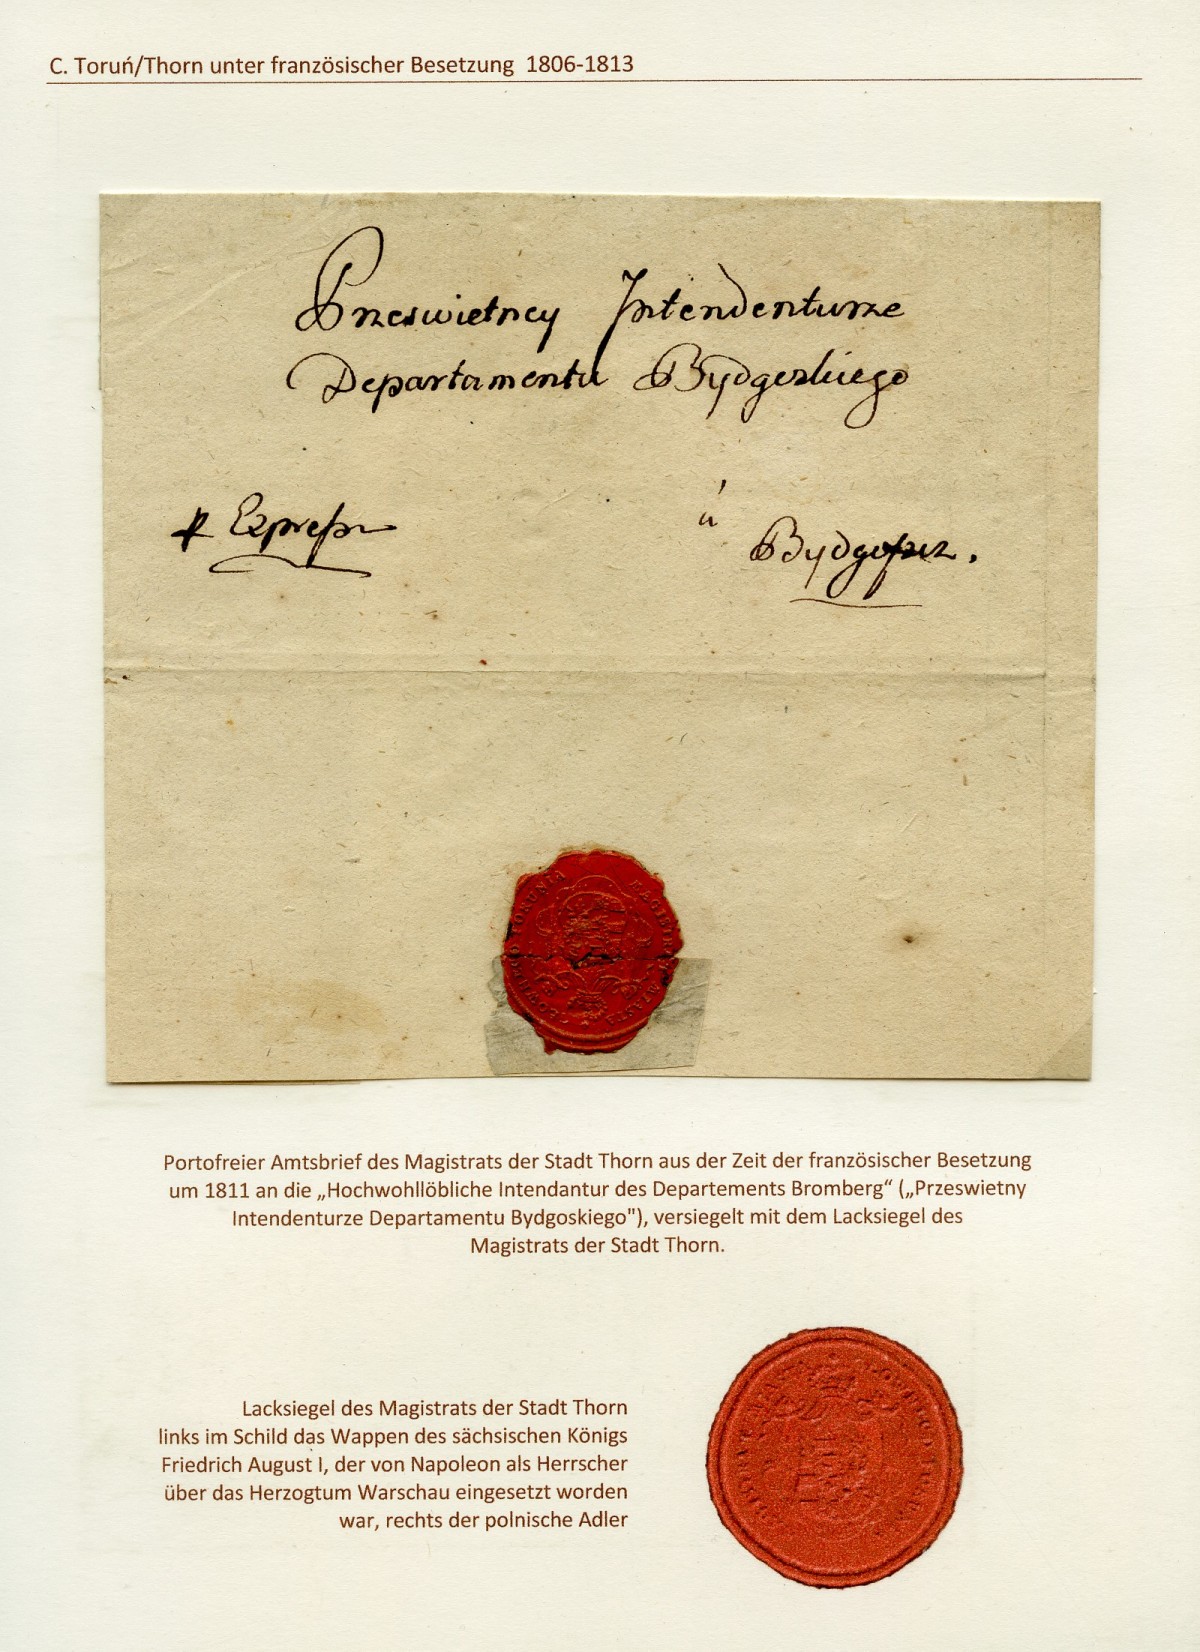 C. Toruń/Thorn unter französischer Besetzung 1806-1813
Przeswietney Intendenturze
Departamentu Bydgoskiego
Expreß
a
Bydgoszcz.
TORUNIA MAGISTRAT MIASTA
Portofreier Amtsbrief des Magistrats der Stadt Thorn aus der Zeit der französischer Besetzung
um 1811 an die „Hochwohllöbliche Intendantur des Departements Bromberg“ („Przeswietny
Intendenturze Departamentu Bydgoskiego"), versiegelt mit dem Lacksiegel des
Magistrats der Stadt Thorn.
Lacksiegel des Magistrats der Stadt Thorn
links im Schild das Wappen des sächsischen Königs
Friedrich August I, der von Napoleon als Herrscher
über das Herzogtum Warschau eingesetzt worden
war, rechts der polnische Adler